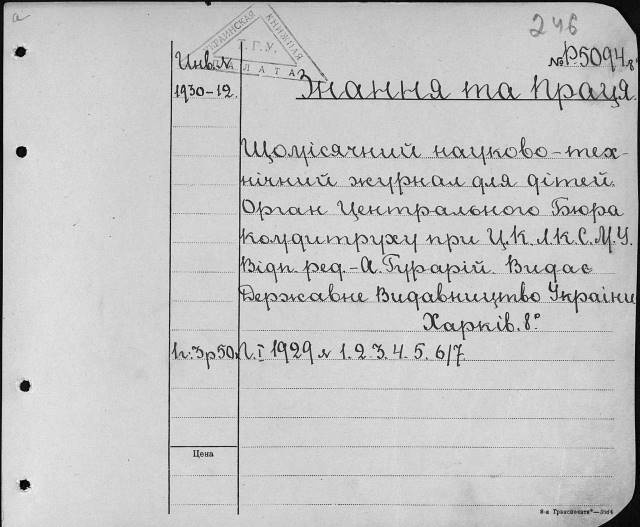 а
246
УКРАИНСКАЯ КНИЖНАЯ ПАЛАТА
Г.У.
Инв. №
№ Р.5094
1930-12.
Знання та Праця.
Щомісячний науково-тех-
нічний журнал для дітей.
Орган Центрального Бюра
комдитруху при Ц.К.Л.К.С.М.У.
Відп. ред. - А. Гурарій. Видає
Державне Видавництво України
Харків. 8°
1ч. 3р50к
Г. I 1929 № 1. 2. 3. 4. 5. 6/7
Цена